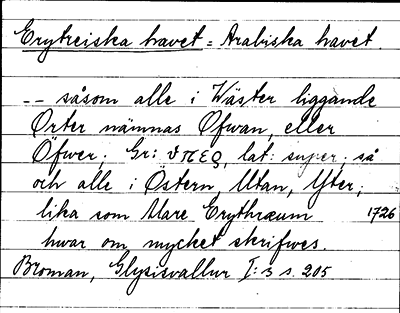 Erytreiska havet = Arabiska havet.
-- såsom alle i Wäster liggande
Orter nämnas Ofwan, eller
Öfwer; Gr: ὑπερ, lat: super; så
och alle i Östern, Utan, Yter;
lika som Mare Erythræum 1726
hwar om mycket skrifwes.
Broman, Glysisvallur I: 3 s. 205